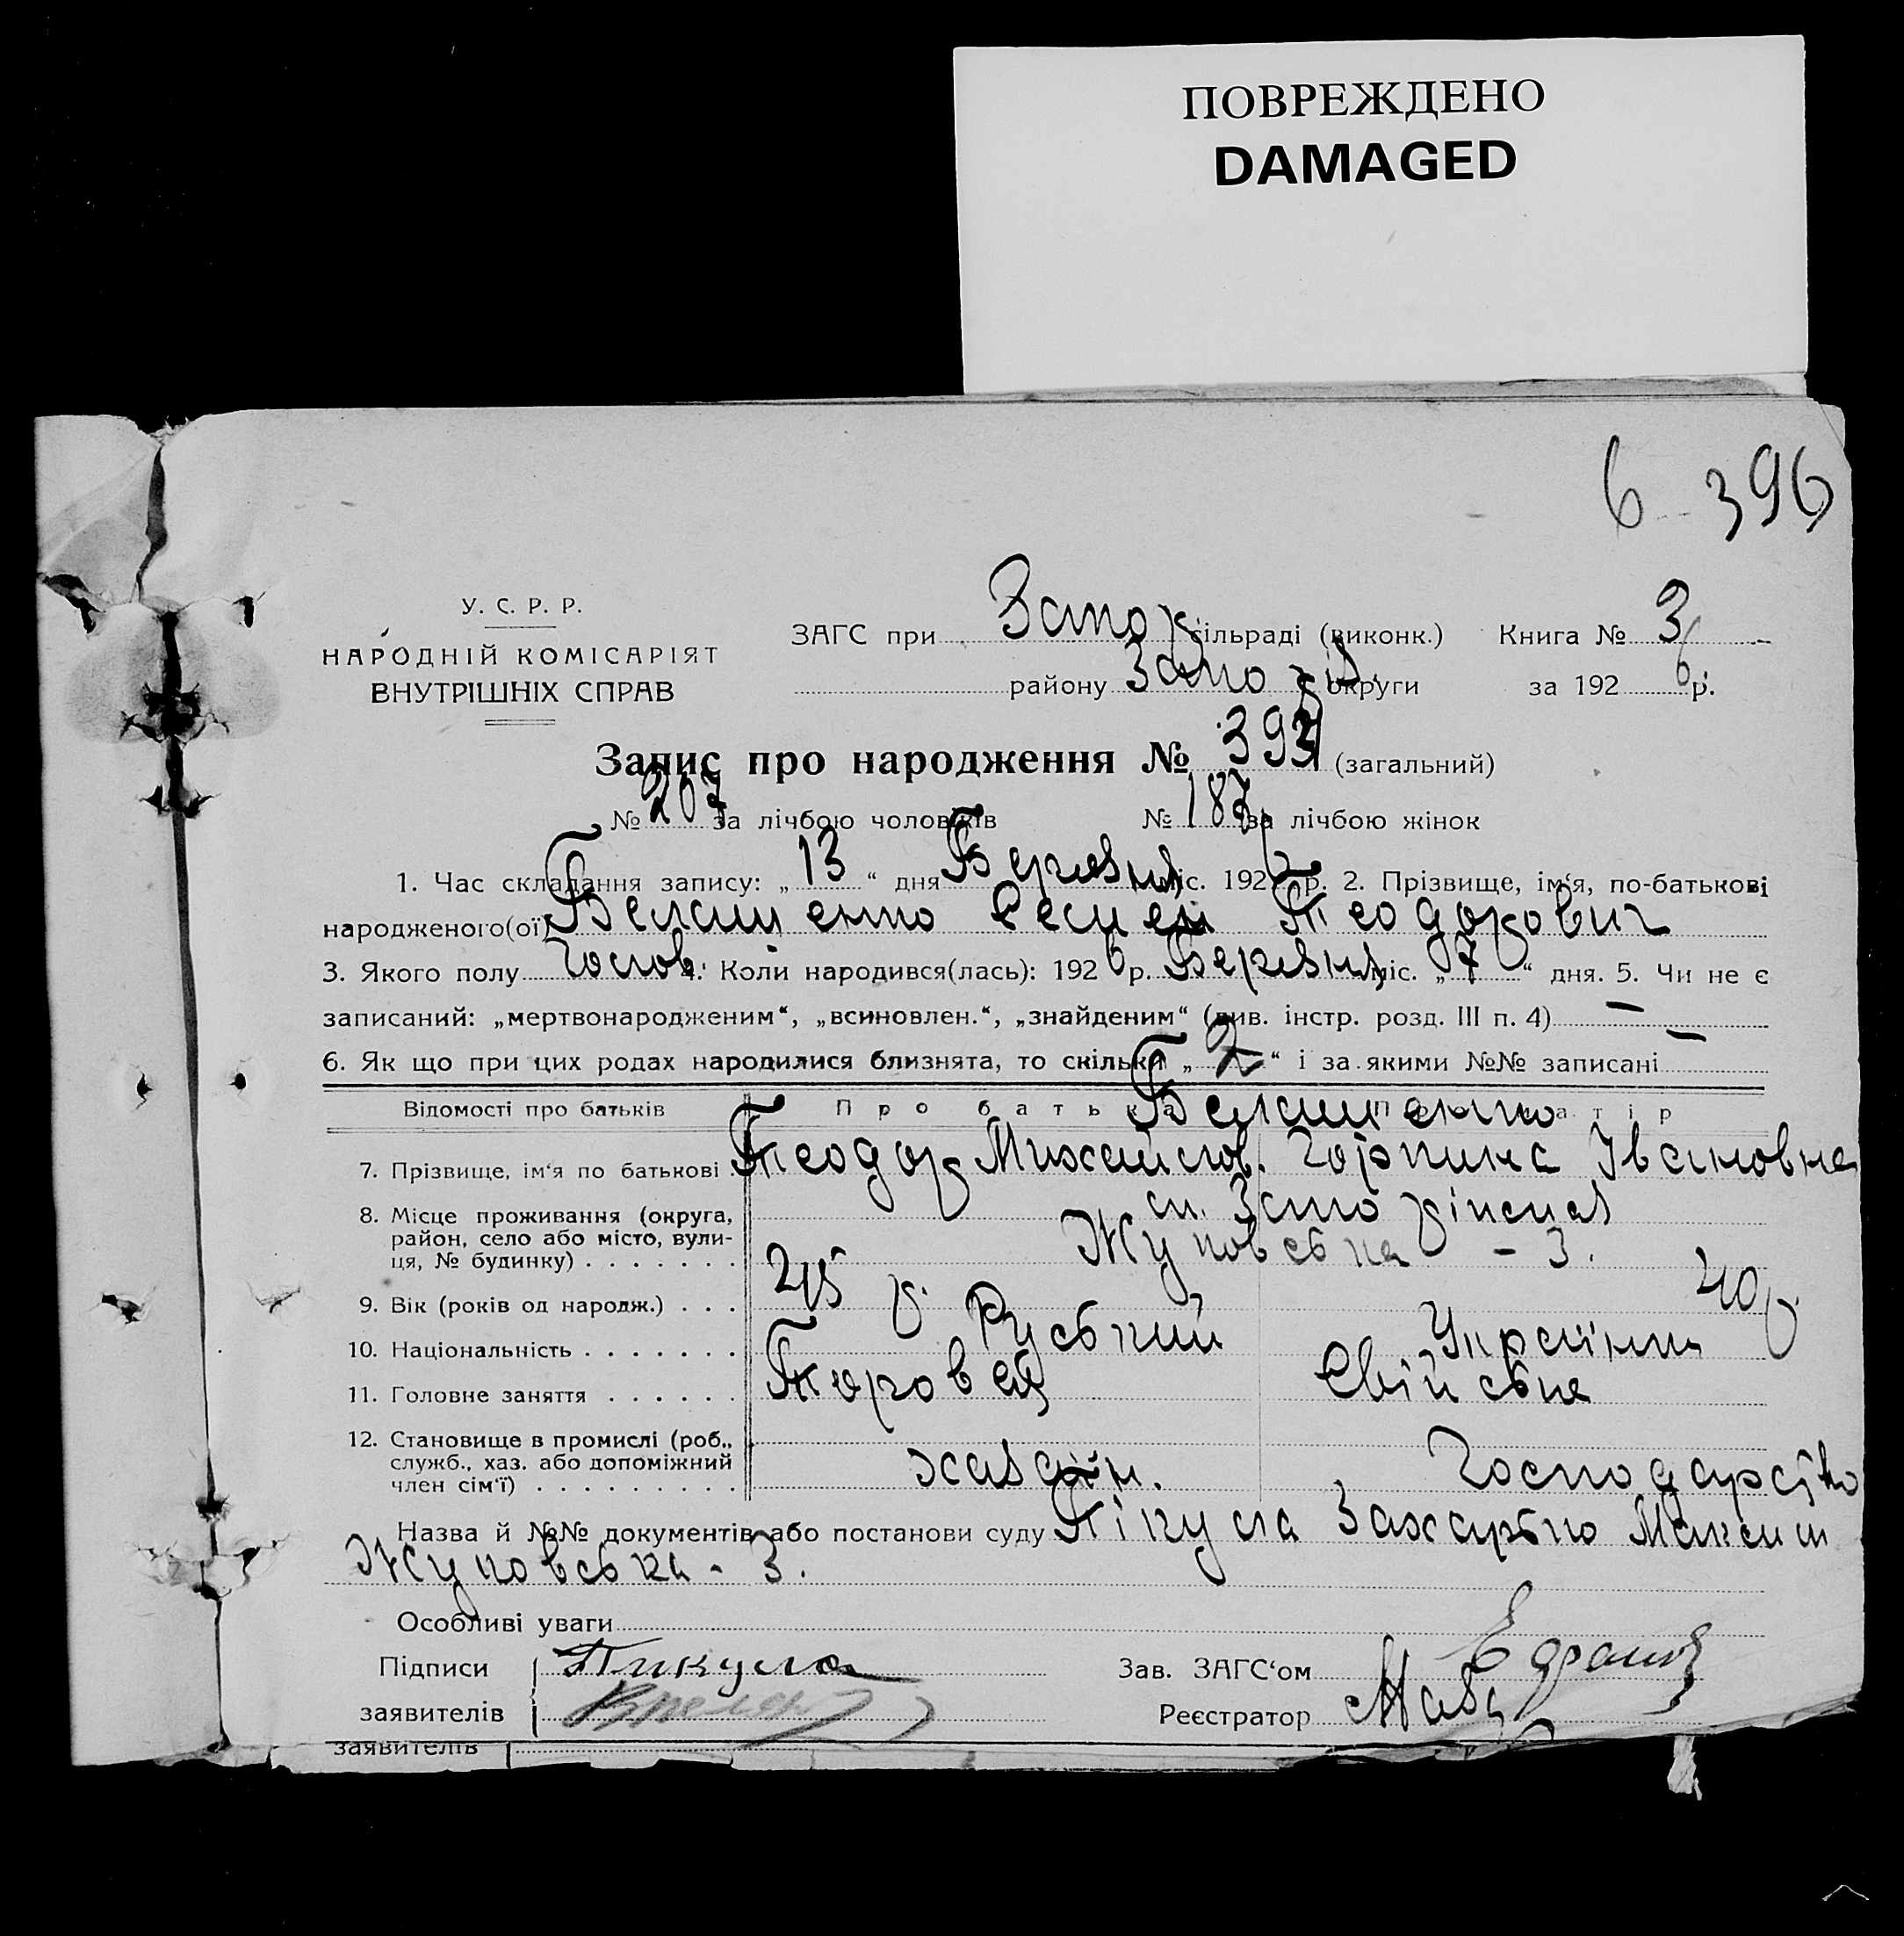 ПОВРЕЖДЕНО
DAMAGED
6 - 396
У. С. Р. Р.
НАРОДНІЙ КОМІСАРІЯТ
ВНУТРІШНІХ СПРАВ
ЗАГС при Запор. сільраді (виконк.) Книга № 3
району Запоріз. округи за 1926 р.
Запис про народження № (загальний)
№ 207 за лічбою чоловіків № 187 за лічбою жінок
1. Час складання запису: „13“ дня Березня міс. 1926 р. 2. Прізвище, ім‘я, по-батькові
народженого(ої) Теодорович
3. Якого полу Чолов. 4. Коли народився(лась): 1926 р. Березня міс. „7“ дня. 5. Чи не є
записаний: „мертвонародженим“, „всиновлен.“, „знайденим“ (див. інстр. розд. III п. 4) —
6. Як що при цих родах народилися близнята, то скільки „2“ і за якими №№ записані —
Відомості про батьків Про батька Про матір
7. Прізвище, ім‘я по батькові Теодор Михайлов. Горпина Івановна
8. Місце проживання (округа,
район, село або місто, вули-
ця, № будинку) Жуковська - 3.
9. Вік (років од народж.) 45 р. 40 р.
10. Національність Руський Українка
11. Головне заняття Торговец Свійське
12. Становище в промислі (роб.,
служб., хаз. або допоміжний
член сім‘ї) хазяїн. Господарство
Назва й №№ документів або постанови суду Пікула Захарько Максим
Жуковська - 3.
Особливі уваги
Підписи Пикула Зав. ЗАГС‘ом
заявителів Реєстратор
заявителів